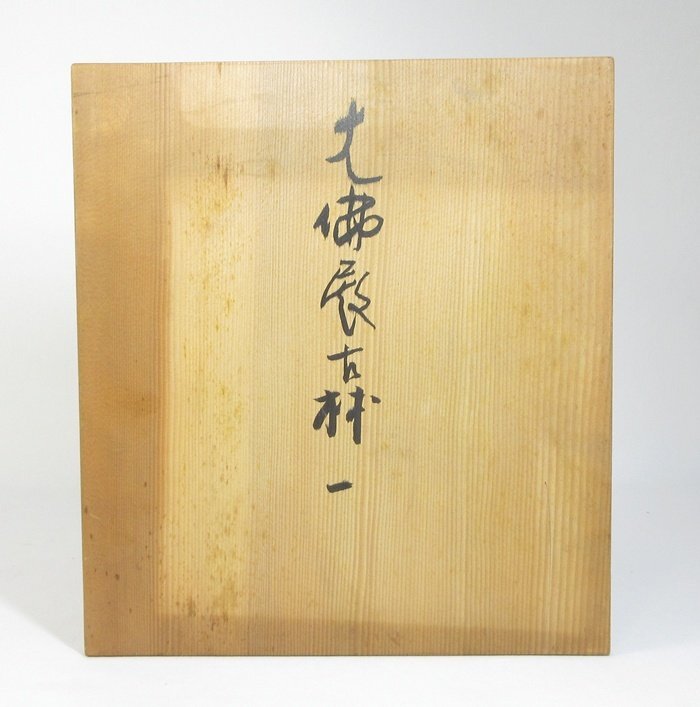 大佛殿古材 一